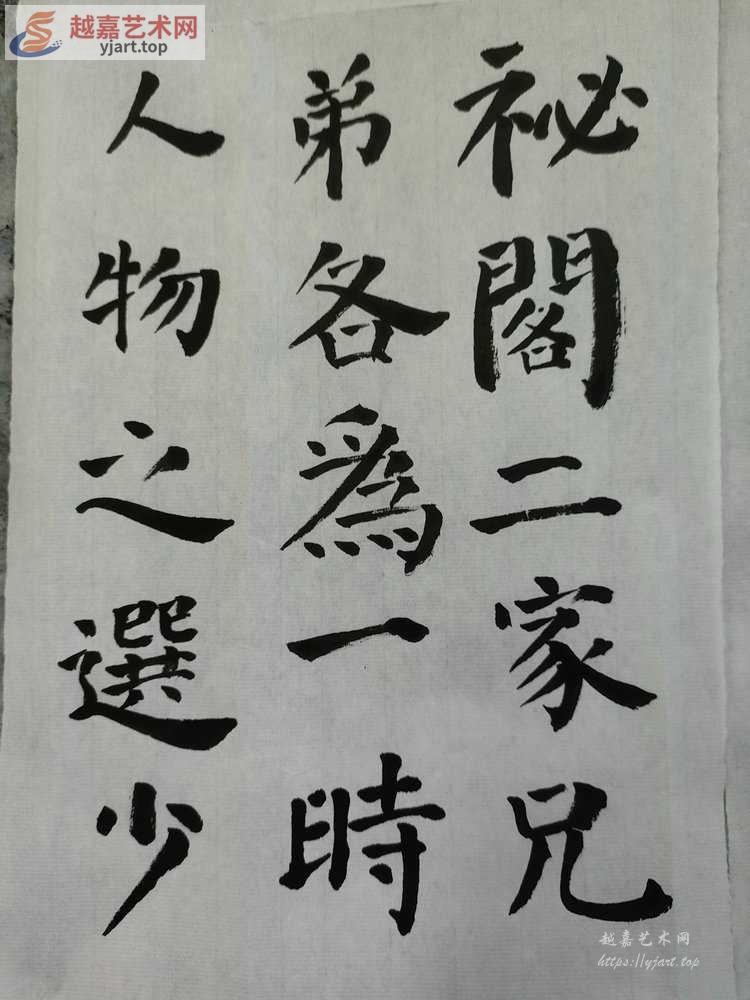 越嘉艺术网
yjart.top
祕閣二家兄
弟各爲一時
人物之選少
越嘉艺术网
https://yjart.top